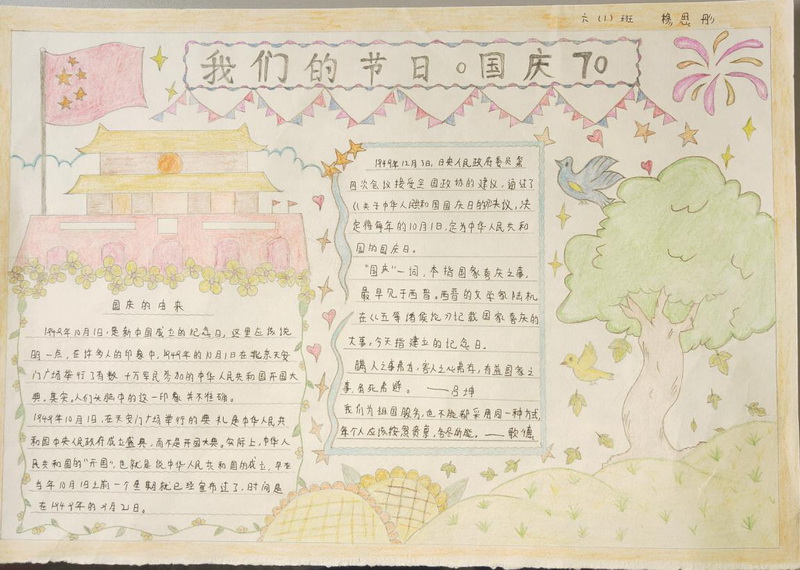 六(1)班 杨思彤
我们的节日。国庆70
国庆的由来
1949年10月1日,是新中国成立的纪念日。这里应该说
明一点,在许多人的印象中,1949年的10月1日在北京天安
门广场举行了有数十万军民参加的中华人民共和国开国大
典。其实,人们头脑中的这一印象并不准确。
1949年10月1日,在天安门广场举行的典礼是中华人民共
和国中央人民政府成立盛典,而不是开国大典。实际上,中华人
民共和国的"开国",也就是说中华人民共和国的成立,早在
当年10月1日之前一个星期就已经宣布过了,时间是
在1949年的9月21日。
1949年12月3日,中央人民政府委员第
四次会议接受全国政协的建议,通过了
《关于中华人民共和国国庆日的决议》,决
定将每年的10月1日,定为中华人民共和
国的国庆日。
"国庆"一词,本指国家喜庆之事,
最早见于西晋。西晋的文学家陆机
在《五等诸侯论》记载国家喜庆的
大事,今天指建立的纪念日。
人之事君者,害人之心莫存,有益国家之
事,虽死弗避。——吕坤
我们为祖国服务,也不能都采用同一种方式,
每个人应该按照资禀,各尽所能。——歌德